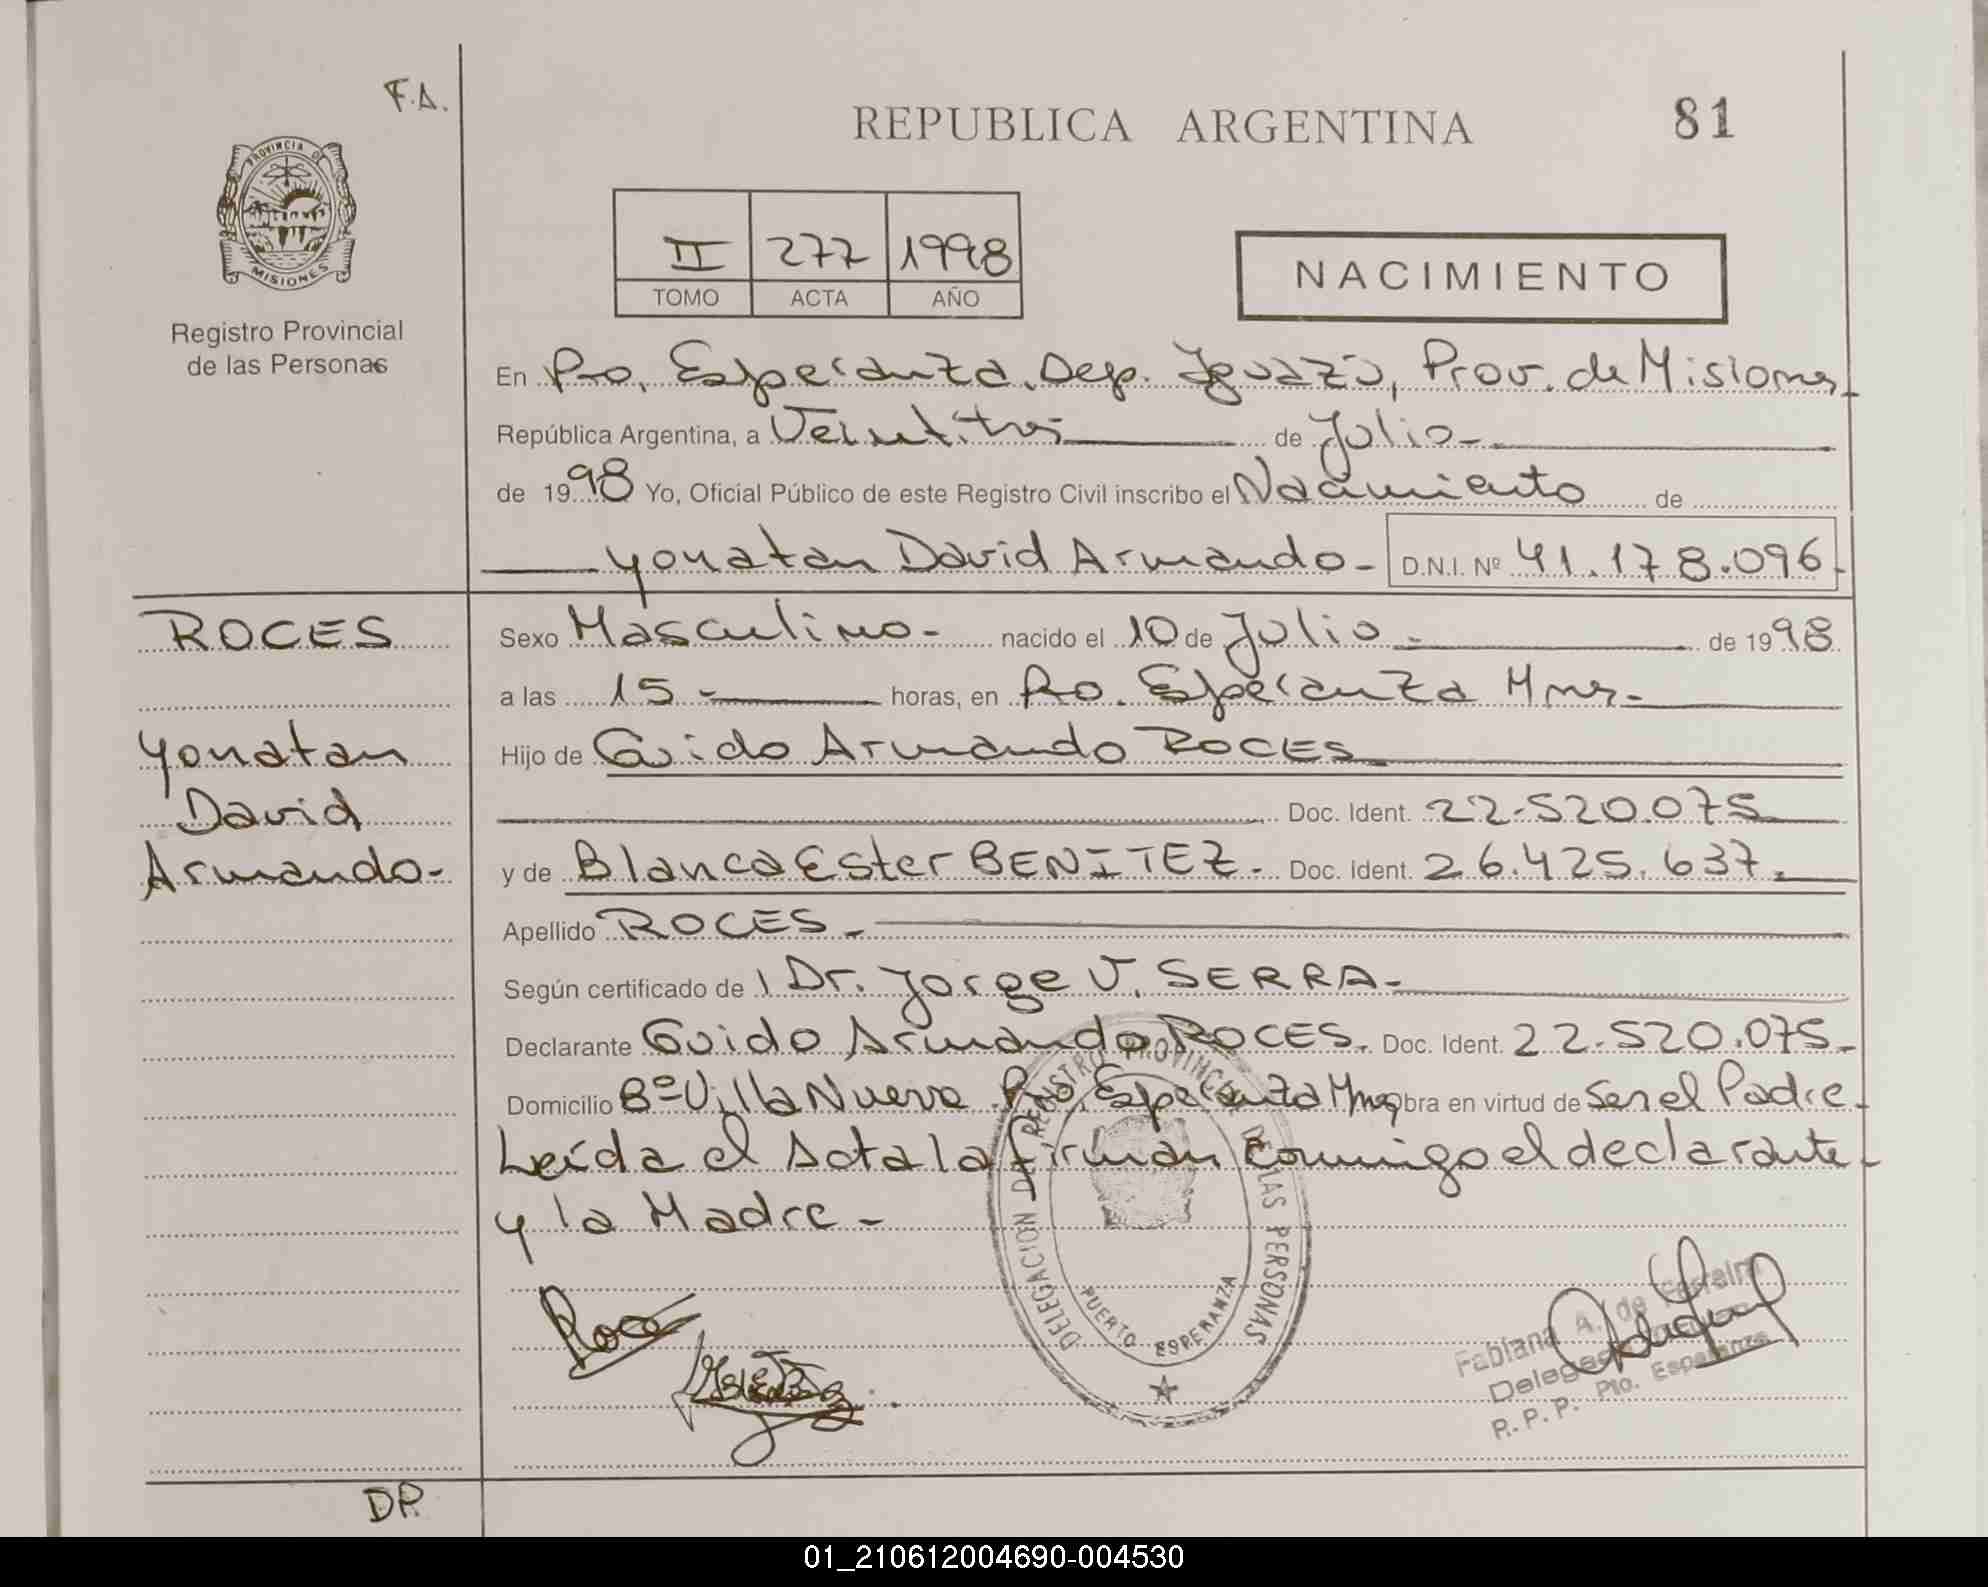 F.A.
REPUBLICA ARGENTINA
81
PROVINCIA DE
MISIONES
Registro Provincial
de las Personas
II 277 1998
TOMO ACTA AÑO
NACIMIENTO
En Pto. Esperanza, Dep. Iguazú, Prov. de Misiones
República Argentina, a Veintitres de Julio
de 1998 Yo, Oficial Público de este Registro Civil inscribo el Nacimiento de
Yonatan David Armando - D.N.I. Nº 41.178.096
ROCES
Yonatan
David
Armando-
Sexo Masculino- nacido el 10 de Julio - de 1998
a las 15 - horas, en Pto. Esperanza Mnes-
Hijo de Guido Armando ROCES
Doc. Ident. 22.520.075
y de Blanca Ester BENITEZ - Doc. Ident. 26.425.637.
Apellido ROCES -
Según certificado de Dr. Jorge V. SERRA -
Declarante Guido Armando ROCES. Doc. Ident. 22.520.075-
Domicilio Bº Villa Nueva Pto. Esperanza Mnes obra en virtud de Ser el Padre-
Leída el Acta la firman conmigo el declarante
y la Madre -
DELEGACION D REGISTRO PROVINCIAL DE LAS PERSONAS
PUERTO ESPERANZA
Fabiana A. de Ferreira
R.P.P. Pto. Esperanza
DP.
01_210612004690-004530